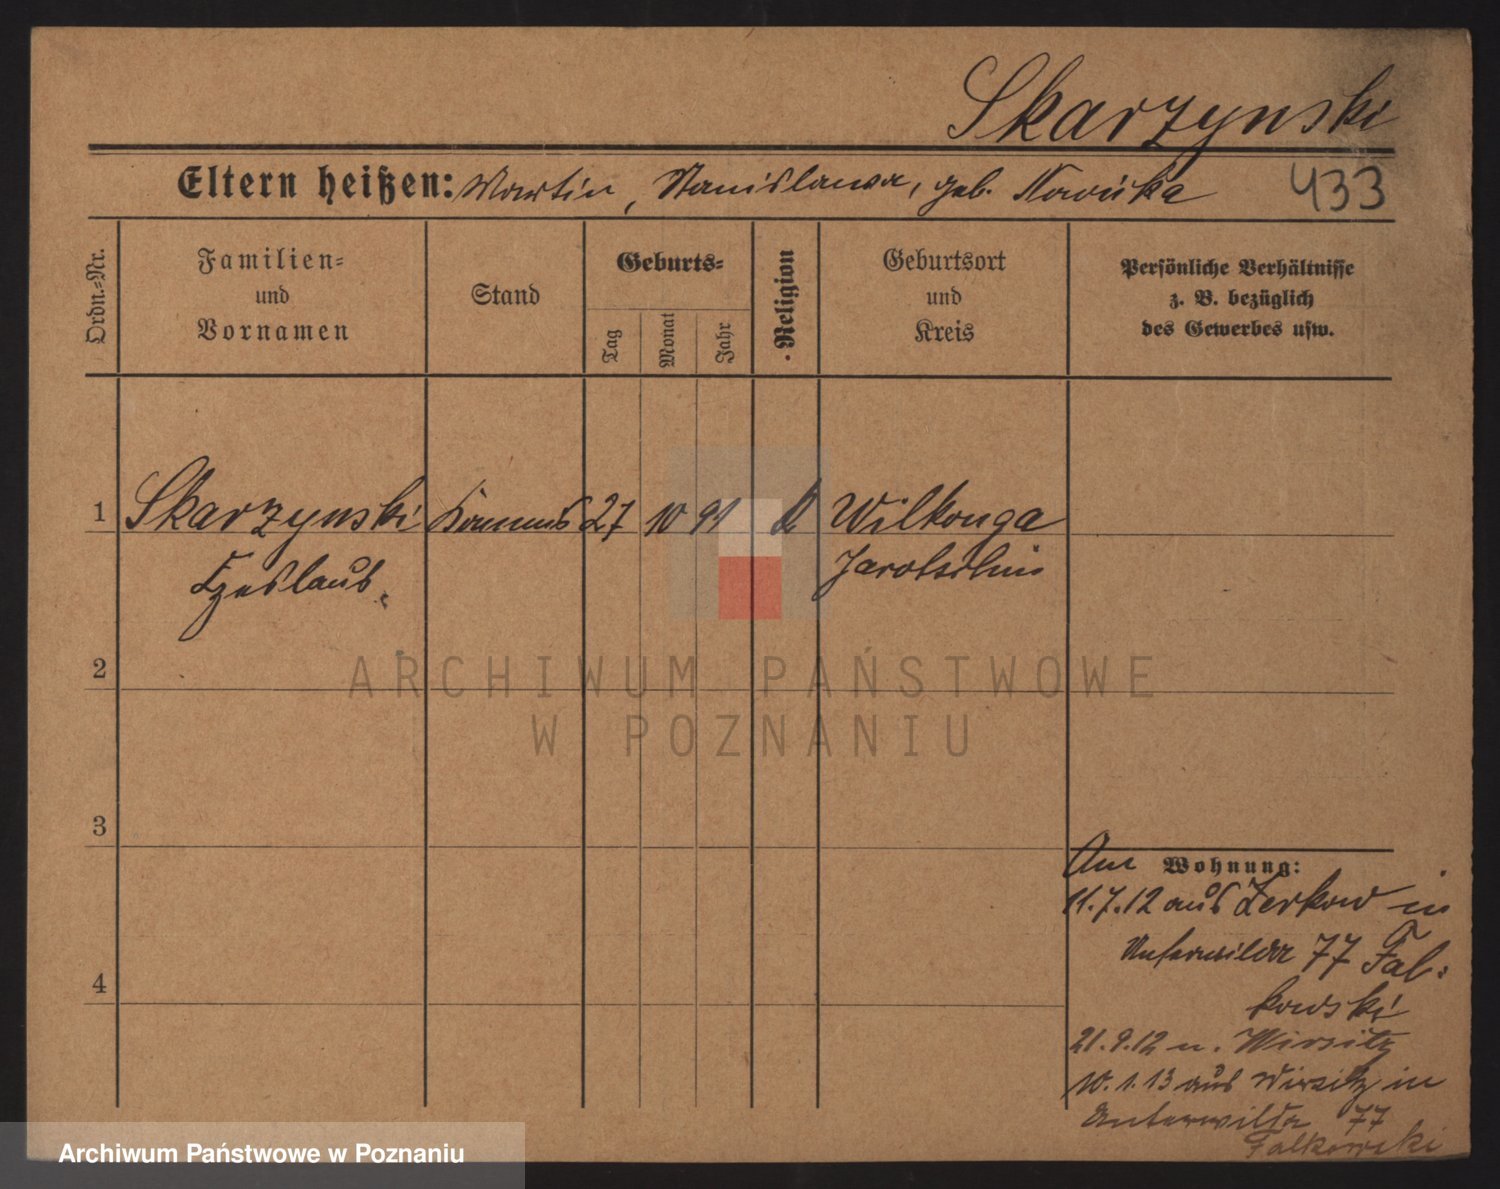 Skarzynski
Eltern heißen: Martin, Stanislawa, geb. Nowicka 433
Ordn.-Nr.
Familien-
und
Vornamen
Stand
Geburts-
Tag
Monat
Jahr
Religion
Geburtsort
und
Kreis
Persönliche Verhältnisse
z. B. bezüglich
des Gewerbes usw.
1 Skarzynski Kommis 27 10 91 k Wilkonga
Czeslaus Jarotschin
2
3
4
Am Wohnung:
11.7.12 aus Zerkow in
Unterwilda 77 Fal-
kowski
21.9.12 n. Wirsitz
10.1.13 aus Wirsitz in
Unterwilda 77
Falkowski
ARCHIWUM PAŃSTWOWE
W POZNANIU
Archiwum Państwowe w Poznaniu